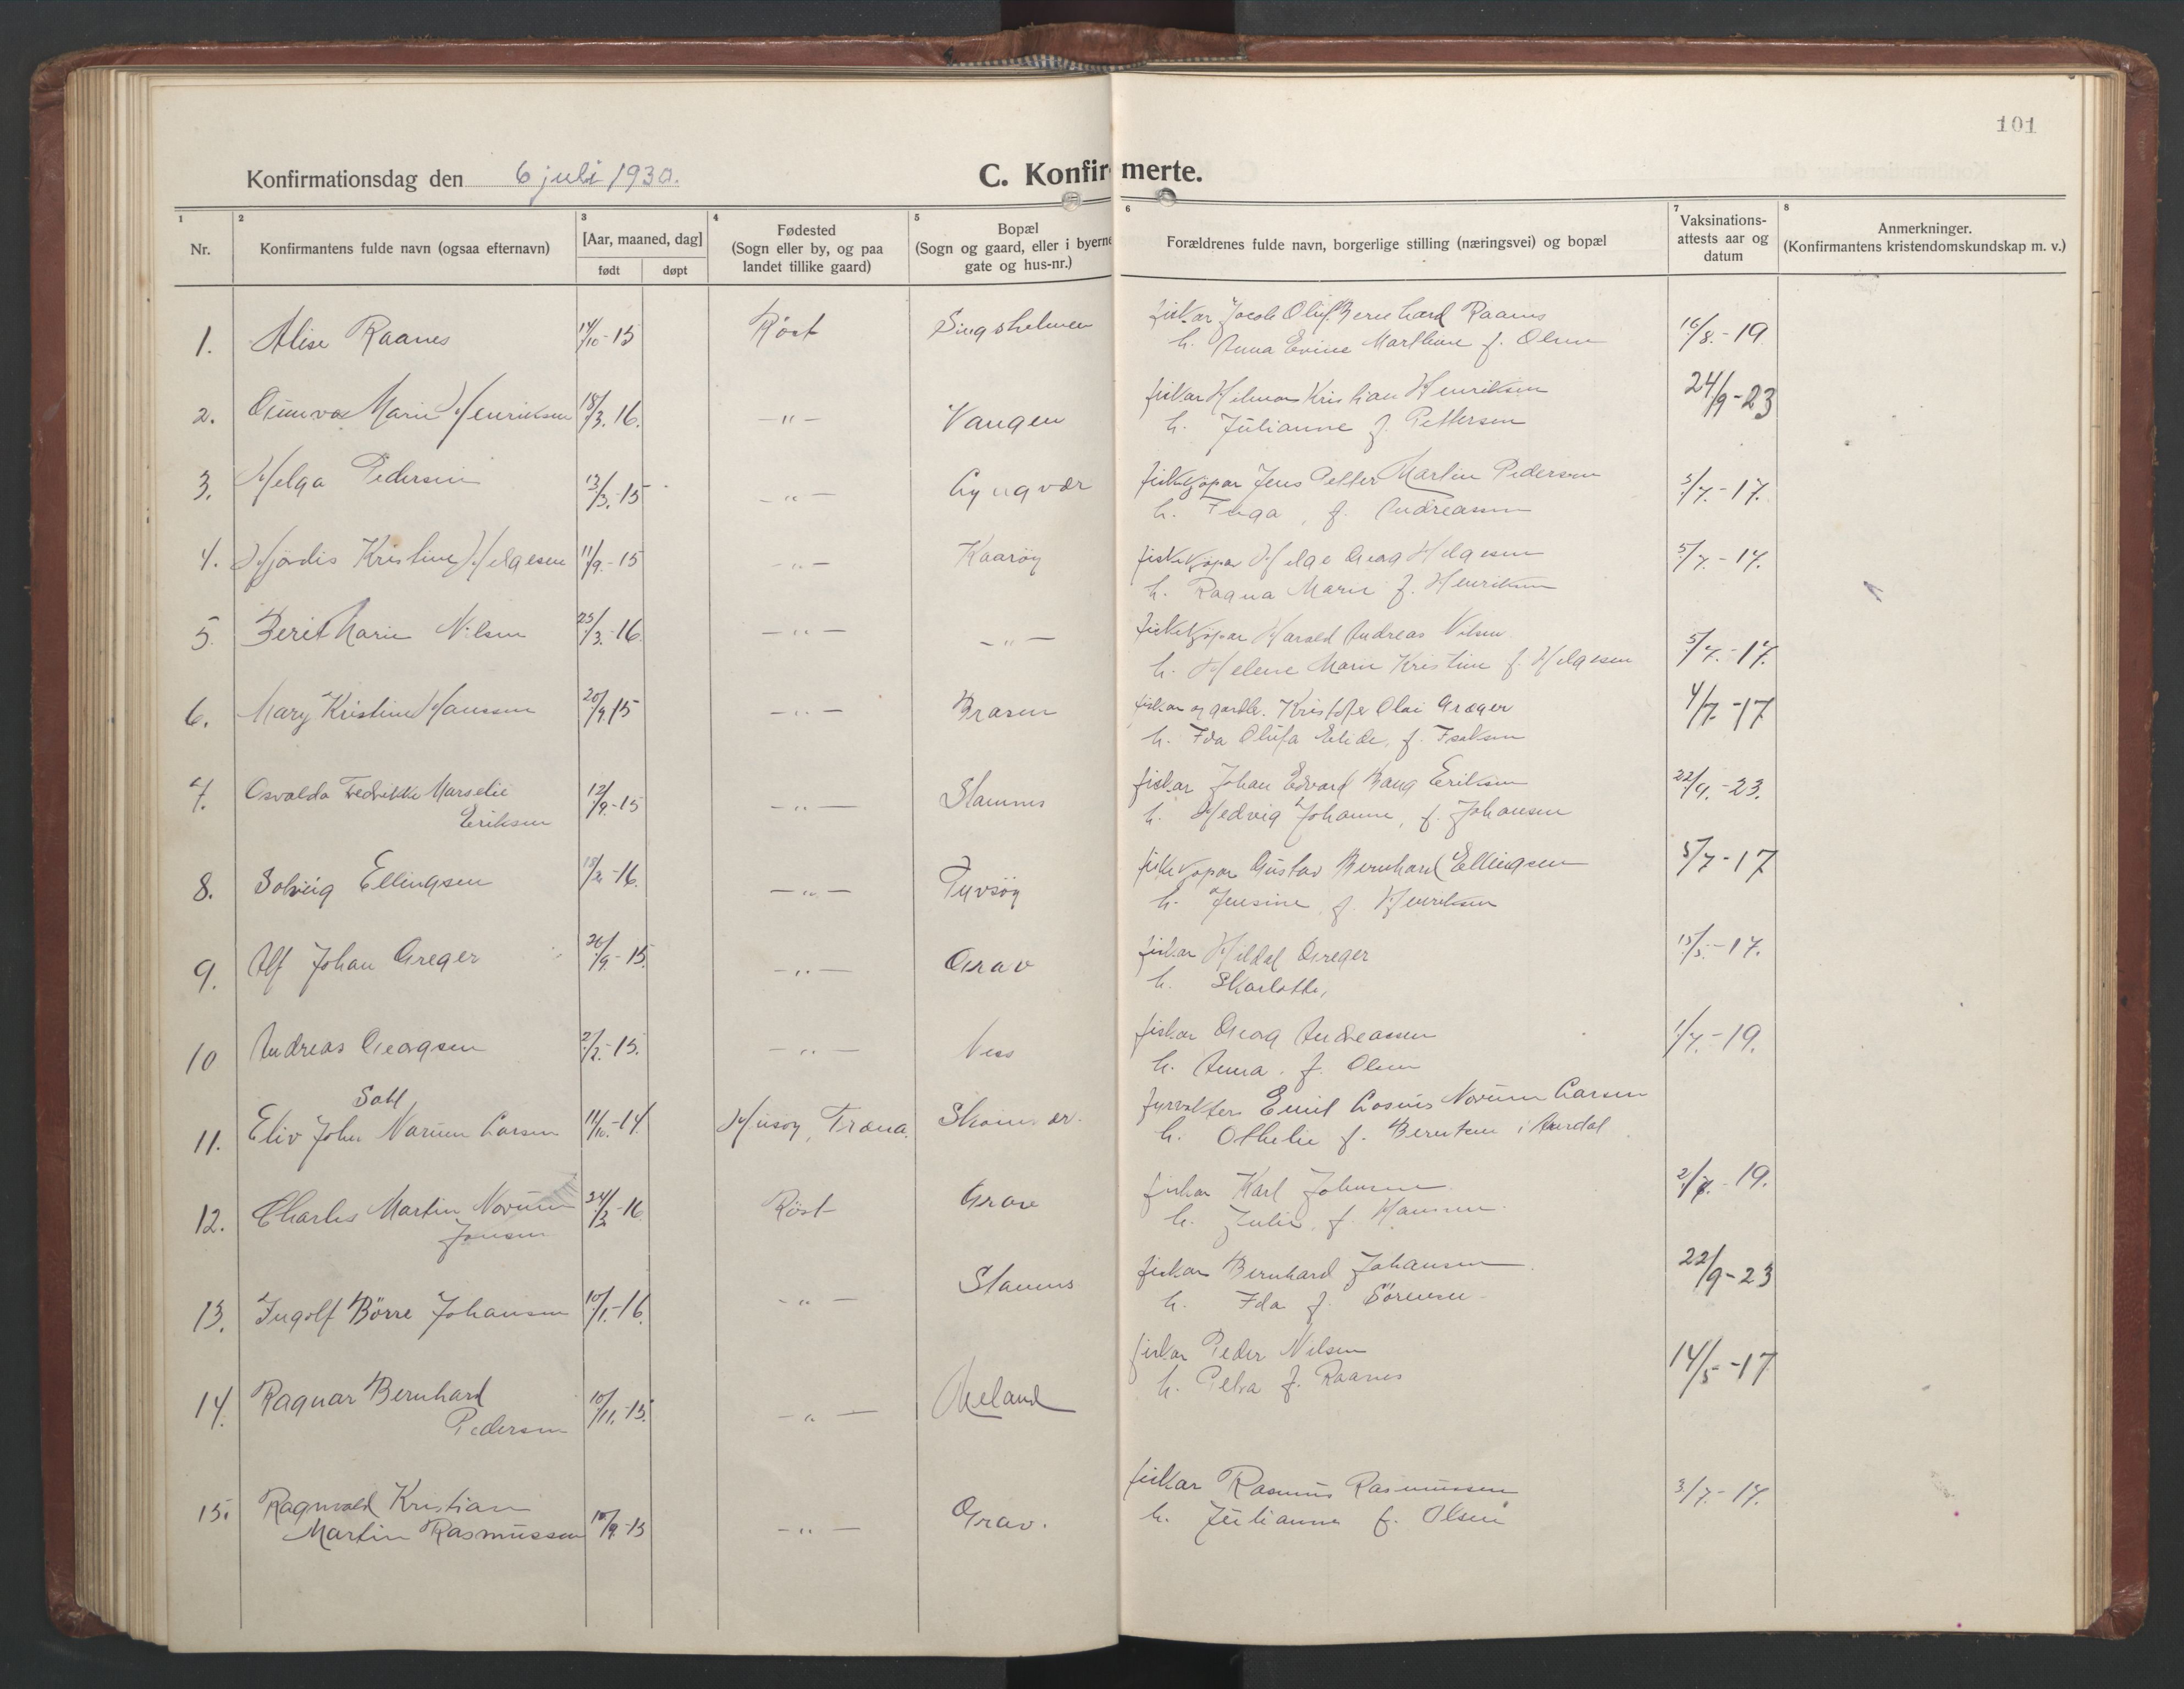 101
Konfirmationsdag den 6 juli 1930.
C. Konfirmerte.
1 2 3 4 5 6 7 8
Nr.
Konfirmantens fulde navn (ogsaa efternavn)
[Aar, maaned, dag]
født døpt
Fødested
(Sogn eller by, og paa
landet tillike gaard)
Bopæl
(Sogn og gaard, eller i byerne
gate og hus-nr.)
Forældrenes fulde navn, borgerlige stilling (næringsvei) og bopæl
Vaksinations-
attests aar og
datum
Anmerkninger.
(Konfirmantens kristendomskundskap m. v.)
1. Alise Raanes 14/10-15 Röst fiskar Jacob Oluf Bernhard Raanes 16/8.-19
h. Anna Evine Marthine f. Olsen
2. Gunvor Marie Henriksen 18/3.16. -"- Vangen fiskar Helmer Kristian Henriksen 24/9-23
h. Julianne f. Pettersen
3. Helga Pedersen 13/3.-15 -"- Lyngvær fiskekjöpar Jens Petter Martin Pedersen 5/7.-17.
h. Inga, f. Andreassen
4. Hjördis Kristine Helgesen 11/9.-15 -"- Kaaröy fiskekjöpar Helge Georg Helgesen 5/7.-17.
h. Ragna Marie f. Henriksen
5. Berit Marie Nilsen 25/3.-16. -"- -"- fiskekjöpar Harald Andreas Nilsen 5/7.-17.
h. Helene Marie Kristine f. Helgesen
6. Mary Kristine Hanssen 20/9.15 -"- Brasen fiskar og gardbr. Kristofer Olai Greger 4/7.-17
h. Ida Olufa Elide, f. Isaksen
7. Osvalda Fredrikke Marselie 12/9.-15 -"- Stamnes fiskar Johan Edvard Bang Eriksen 22/9.-23.
Eriksen h. Hedvig Johanne, f. Johansen
8. Solveig Ellingsen -16. -"- Tyvsöy fiskekjöpar Gustav Bernhard Ellingsen 5/7-17
h. Jensine, f. Henriksen
9. Alf Johan Greger 26/9.-15. -"- Grav fiskar Hildal Greger 15/5.-17.
h. Skarlotte,
10 Andreas Georgsen 2/2.-15. -"- Ness fiskar Georg Andreassen 1/7.-19.
h. Anna. f. Olsen
11. Eliv John Narum Larsen 11/10.-14. Husøy, Træna. fyrvakter Emil Narum Larsen
h. Othelie f. Berntsen i
12. Charles Martin Norum 24/3-16 Röst Grav fiskar Karl Johansen 2/7.-19.
Jensen h. Julie, f. Hansen.
13. Ingolf Börre Johansen 10/1.-16. -"- Stamnes fiskar Bernhard Johansen 22/9-23
h. Ida f. Sörensen
14. Ragnar Bernhard 10/11.-15. -"- Meland fiskar Peder Nilsen 14/5-17
Pedersen h. Petra f. Raanes
15. Ragnvald Kristian -"- Grav. fiskar Rasmus Rasmussen 3/7.-17.
Martin Rasmussen h. Julianne f. Olsen